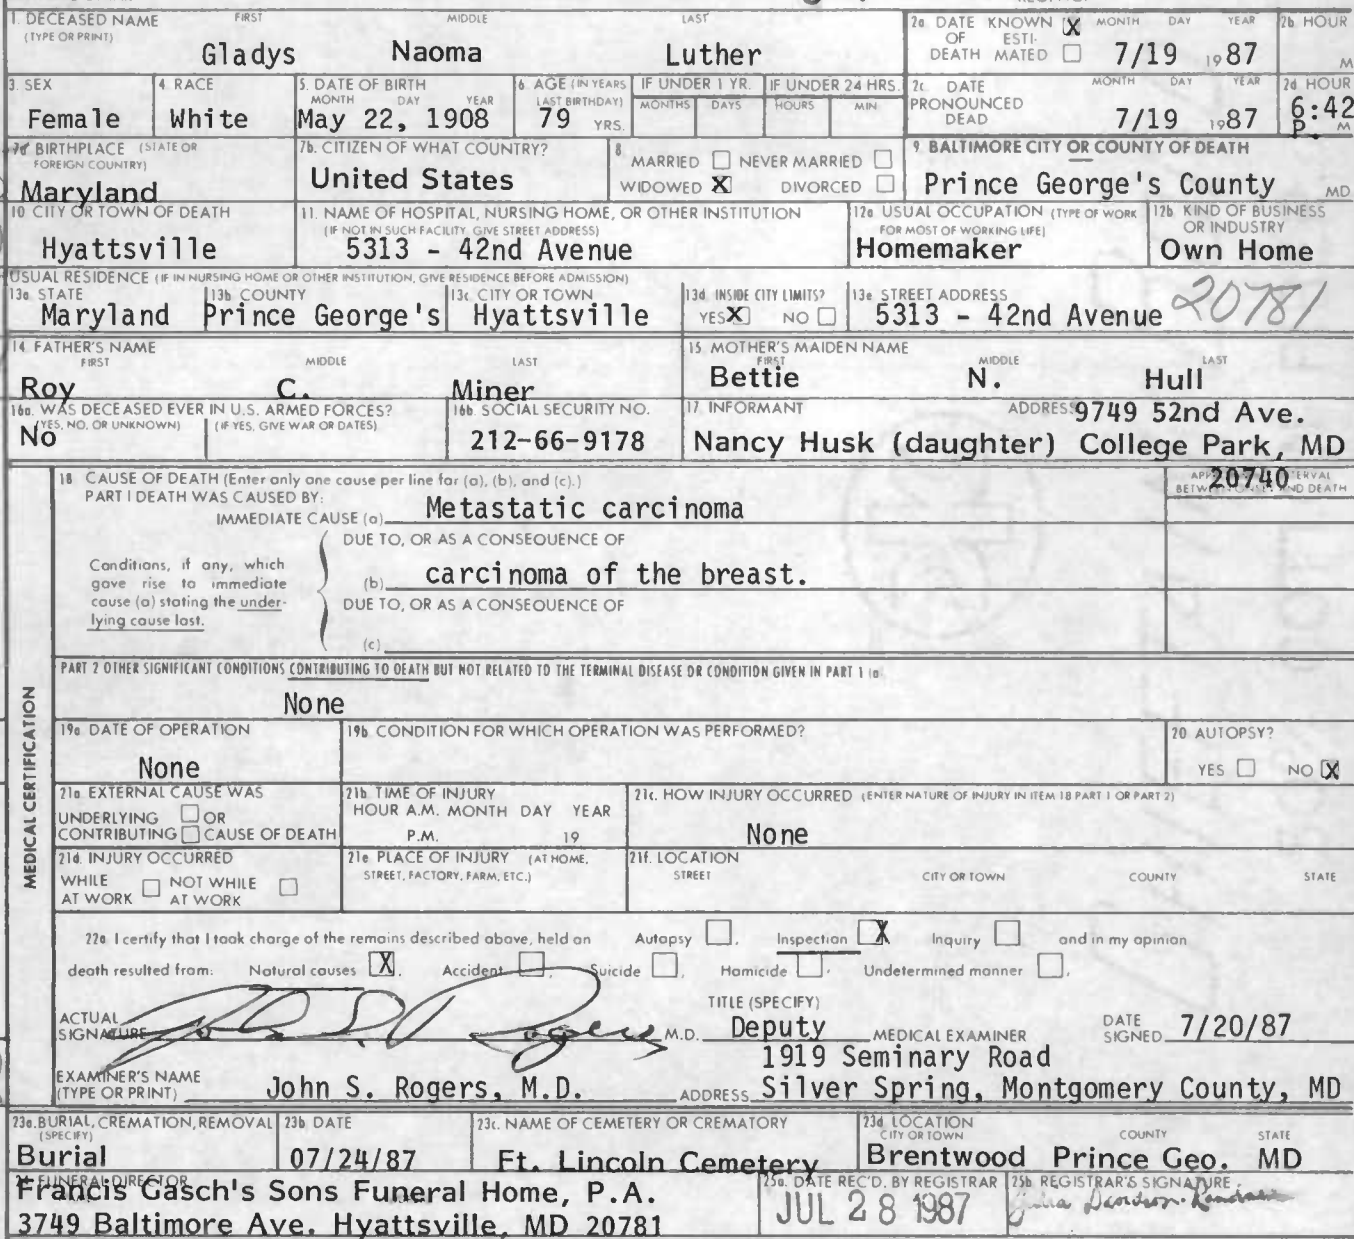 1. DECEASED NAME FIRST MIDDLE LAST
(TYPE OR PRINT)
Gladys Naoma Luther
2a DATE KNOWN X MONTH DAY YEAR
OF ESTI-
DEATH MATED 7/19 1987
2b HOUR
M
3. SEX
Female
4. RACE
White
5. DATE OF BIRTH
MONTH DAY YEAR
May 22, 1908
6. AGE (IN YEARS
LAST BIRTHDAY)
79 YRS.
IF UNDER 1 YR.
MONTHS DAYS
IF UNDER 24 HRS.
HOURS MIN
2c. DATE MONTH DAY YEAR
PRONOUNCED
DEAD 7/19 1987
2d HOUR
6:42
P. M
7a BIRTHPLACE (STATE OR
FOREIGN COUNTRY)
Maryland
7b. CITIZEN OF WHAT COUNTRY?
United States
8
MARRIED NEVER MARRIED
WIDOWED X DIVORCED
9. BALTIMORE CITY OR COUNTY OF DEATH
Prince George's County MD
10 CITY OR TOWN OF DEATH
Hyattsville
11. NAME OF HOSPITAL, NURSING HOME, OR OTHER INSTITUTION
(IF NOT IN SUCH FACILITY, GIVE STREET ADDRESS)
5313 - 42nd Avenue
12a USUAL OCCUPATION (TYPE OF WORK
FOR MOST OF WORKING LIFE)
Homemaker
12b. KIND OF BUSINESS
OR INDUSTRY
Own Home
USUAL RESIDENCE (IF IN NURSING HOME OR OTHER INSTITUTION, GIVE RESIDENCE BEFORE ADMISSION)
13a STATE
Maryland
13b COUNTY
Prince George's
13c CITY OR TOWN
Hyattsville
13d INSIDE CITY LIMITS?
YES X NO
13e STREET ADDRESS
5313 - 42nd Avenue 20781
14 FATHER'S NAME
FIRST MIDDLE LAST
Roy C. Miner
15 MOTHER'S MAIDEN NAME
FIRST MIDDLE LAST
Bettie N. Hull
16a. WAS DECEASED EVER IN U.S. ARMED FORCES?
(YES, NO, OR UNKNOWN) (IF YES, GIVE WAR OR DATES)
No
16b. SOCIAL SECURITY NO.
212-66-9178
17 INFORMANT ADDRESS 9749 52nd Ave.
Nancy Husk (daughter) College Park, MD
20740
BETWEEN ONSET AND DEATH
18 CAUSE OF DEATH (Enter only one cause per line for (a), (b), and (c).)
PART I DEATH WAS CAUSED BY:
IMMEDIATE CAUSE (a) Metastatic carcinoma
DUE TO, OR AS A CONSEQUENCE OF
Conditions, if any, which
gave rise to immediate
cause (a) stating the under-
lying cause last.
(b) carcinoma of the breast.
DUE TO, OR AS A CONSEQUENCE OF
(c)
PART 2 OTHER SIGNIFICANT CONDITIONS CONTRIBUTING TO DEATH BUT NOT RELATED TO THE TERMINAL DISEASE OR CONDITION GIVEN IN PART 1 (a)
None
MEDICAL CERTIFICATION
19a DATE OF OPERATION
None
19b CONDITION FOR WHICH OPERATION WAS PERFORMED?
20 AUTOPSY?
YES NO X
21a. EXTERNAL CAUSE WAS
UNDERLYING OR
CONTRIBUTING CAUSE OF DEATH
21b. TIME OF INJURY
HOUR A.M. MONTH DAY YEAR
P.M. 19
21c. HOW INJURY OCCURRED (ENTER NATURE OF INJURY IN ITEM 18 PART 1 OR PART 2)
None
21d. INJURY OCCURRED
WHILE NOT WHILE
AT WORK AT WORK
21e PLACE OF INJURY (AT HOME,
STREET, FACTORY, FARM, ETC.)
21f. LOCATION
STREET CITY OR TOWN COUNTY STATE
22a I certify that I took charge of the remains described above, held an Autopsy , Inspection X Inquiry and in my opinion
death resulted from: Natural causes X, Accident , Suicide , Homicide , Undetermined manner .
ACTUAL
SIGNATURE John S. Rogers M.D.
TITLE (SPECIFY)
Deputy MEDICAL EXAMINER
DATE
SIGNED 7/20/87
1919 Seminary Road
EXAMINER'S NAME
(TYPE OR PRINT) John S. Rogers, M.D. ADDRESS Silver Spring, Montgomery County, MD
23a. BURIAL, CREMATION, REMOVAL
(SPECIFY)
Burial
23b DATE
07/24/87
23c. NAME OF CEMETERY OR CREMATORY
Ft. Lincoln Cemetery
23d LOCATION
CITY OR TOWN COUNTY STATE
Brentwood Prince Geo. MD
24 FUNERAL DIRECTOR
Francis Gasch's Sons Funeral Home, P.A.
3749 Baltimore Ave. Hyattsville, MD 20781
25a. DATE REC'D. BY REGISTRAR
JUL 28 1987
25b REGISTRAR'S SIGNATURE